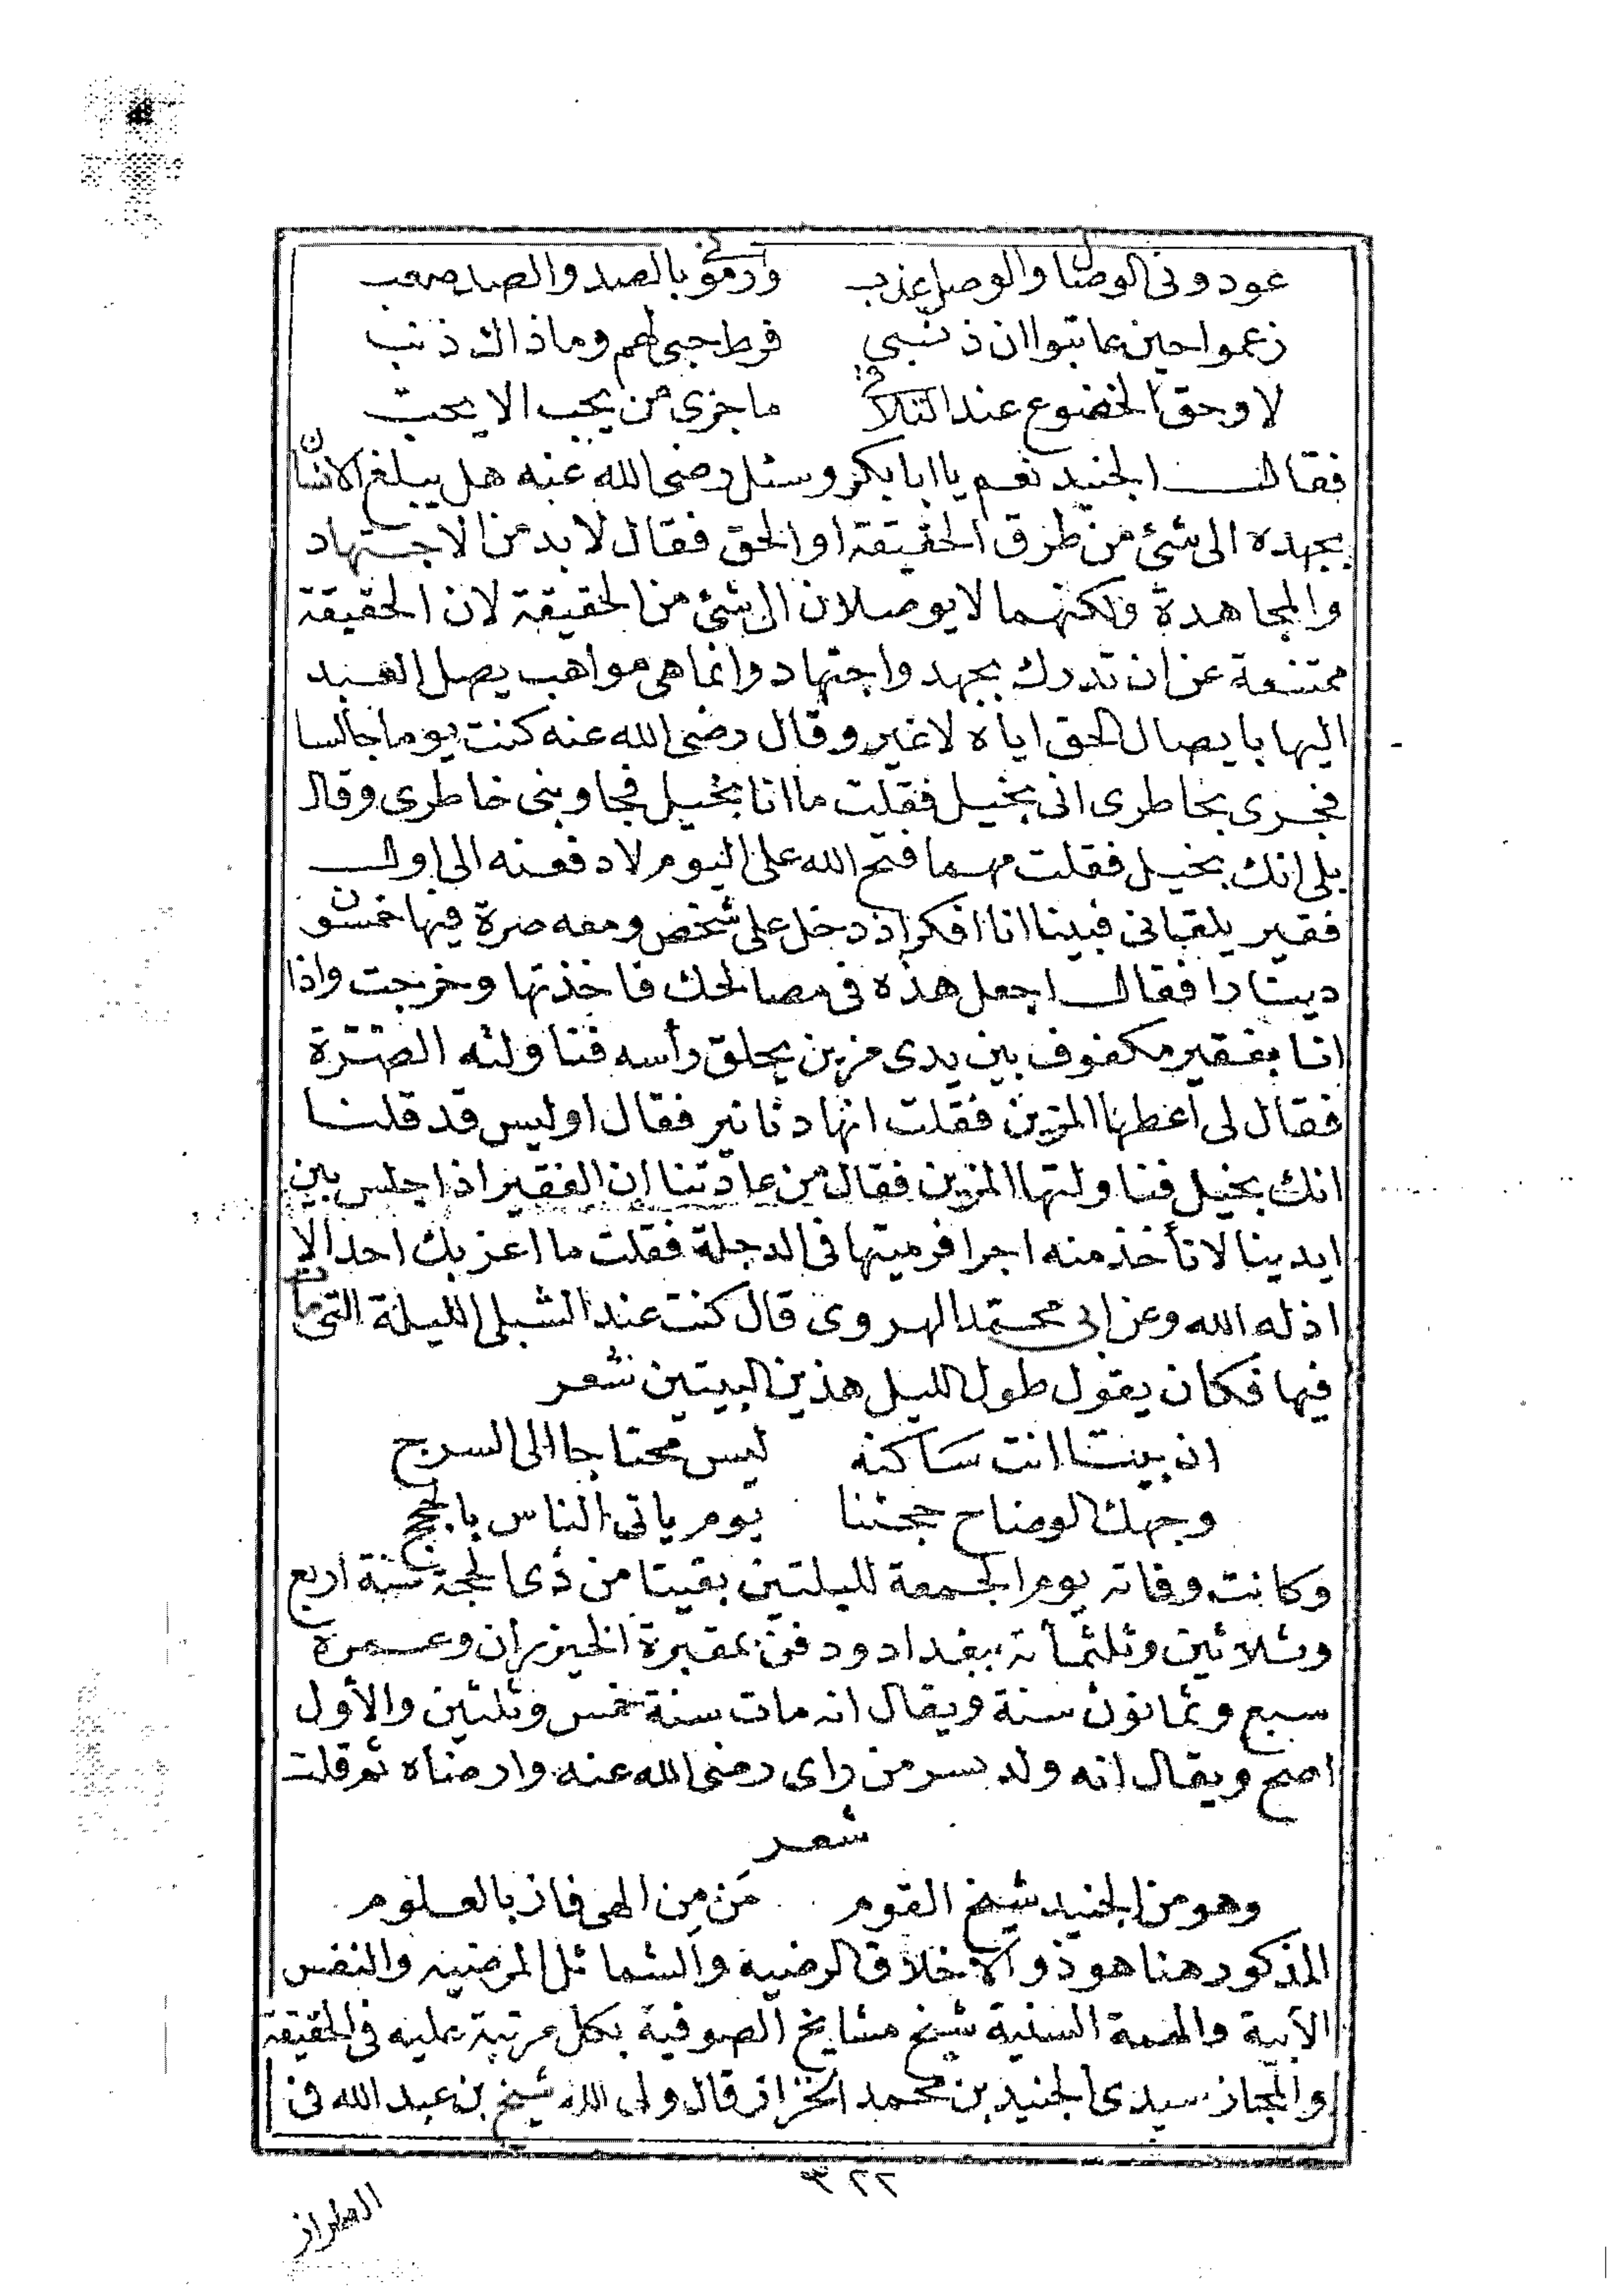 عودونى الوصال والوصل عذب ورموني بالصد والصد صعب
زعموا حين عاتبوا ان ذنبي فرط حبى لهم وما ذاك ذنب
لا وحق الخضوع عند التلاقي ما جزى من يحب الا يحب
فقال الجنيد نعم يا ابا بكر وسئل رضى الله عنه هل يبلغ الانسان
بجهده الى شئ من طرق الحقيقة او الحق فقال لا بد من الاجتهاد
والمجاهدة ولكنهما لا يوصلان الى شئ من الحقيقة لان الحقيقة
ممتنعة عن ان تدرك بجهد واجتهاد وانما هى مواهب يصل العبد
اليها بايصال الحق اياه لا غير وقال رضى الله عنه كنت يوما جالسا
فجرى بخاطرى انى بخيل فقلت ما انا بخيل فجاوبنى خاطرى وقال
بلى انك بخيل فقلت مهما فتح الله على اليوم لا دفعنه الى اول
فقير يلقانى فبينا انا افكر اذ دخل على شخص ومعه صرة فيها خمسون
دينارا فقال اجعل هذه فى مصالحك فاخذتها وخرجت واذا
انا بفقير مكفوف بين يدى مزين يحلق رأسه فناولته الصرة
فقال لى اعطها المزين فقلت انها دنانير فقال اوليس قد قلنا
انك بخيل فناولتها المزين فقال من عادتنا ان الفقير اذا جلس بين
ايدينا لا نأخذ منه اجرا فرميتها فى الدجلة فقلت ما اعزبك احد الا
اذله الله وعن ابى محمد الهروى قال كنت عند الشبلى الليلة التى مات
فيها فكان يقول طول الليل هذين البيتين شعر
ان بيتا انت ساكنه ليس محتاجا الى السرج
وجهك الوضاح حجتنا يوم ياتى الناس بالحجج
وكانت وفاته يوم الجمعة لليلتين بقيتا من ذى الحجة سنة اربع
وثلاثين وثلثمأنة ببغداد ودفن بمقبرة الخيزران وعمره
سبع وثمانون سنة ويقال انه مات سنة خمس وثلثين والأول
اصح ويقال انه ولد بسر من راى رضى الله عنه وارضاه ثم قلت
شعر
وهو من الجنيد شيخ القوم مَن مِن الهى فاز بالعلوم
المذكور هنا هو ذو الاخلاق الرضيه والشمائل المرضيه والنفس
الآبية والهمة السنية شيخ مشايخ الصوفية بكل مرتبة عليه فى الحقيقة
والمجاز سيدى الجنيد بن محمد الخزاز قال ولى الله شيخ بن عبد الله فى
٣٢٢
الطراز